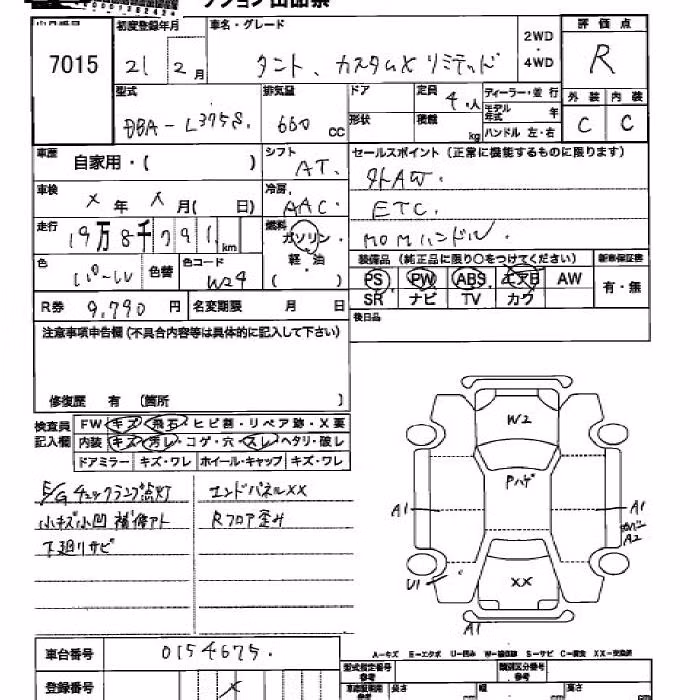 7015
初度登録年月
21 年 2 月
車名・グレード
タント、カスタムX リミテッド
2WD
・
4WD
評価点
R
外装 内装
C C
型式
DBA-L375S.
排気量
660 cc
ドア
形状
定員 4.人
積載 kg
ディーラー・並行
モデル年式 年
ハンドル 左・右
車歴
自家用・( )
シフト
AT.
セールスポイント (正常に機能するものに限ります)
外AW.
ETC.
MOMハンドル.
車検
X 年 X 月( 日)
冷房
AAC.
走行
19万8千791km
燃料
ガソリン・
軽・油
( )
色
パール
色替
色コード
W24
装備品 (純正品に限り○をつけてください)
新車保証書
PS PW ABS エアB AW
SR ナビ TV カワ
有・無
R券 9,790 円 名変期限 月 日
後日品
注意事項申告欄 (不具合内容等は具体的に記入して下さい)
修復歴 有 (箇所 )
検査員
記入欄
FW キズ・飛石・ヒビ割・リペア跡・X要
内装 キズ・汚レ・コゲ・穴・スレ・ヘタリ・破レ
ドアミラー キズ・ワレ ホイール・キャップ キズ・ワレ
E/Gチェックランプ点灯
小キズ小凹 補修アト
下廻リサビ
エンドパネルXX
Rフロア歪み
W2
Pハゲ
A1
A1
A2
U1
XX
A1
A-キズ E-エクボ U-凹み W-補修跡 S-サビ C-腐食 XX-交換済
車台番号
0154675.
登録番号
型式指定番号
参考
類別区分番号
参考
長さ 幅 高さ